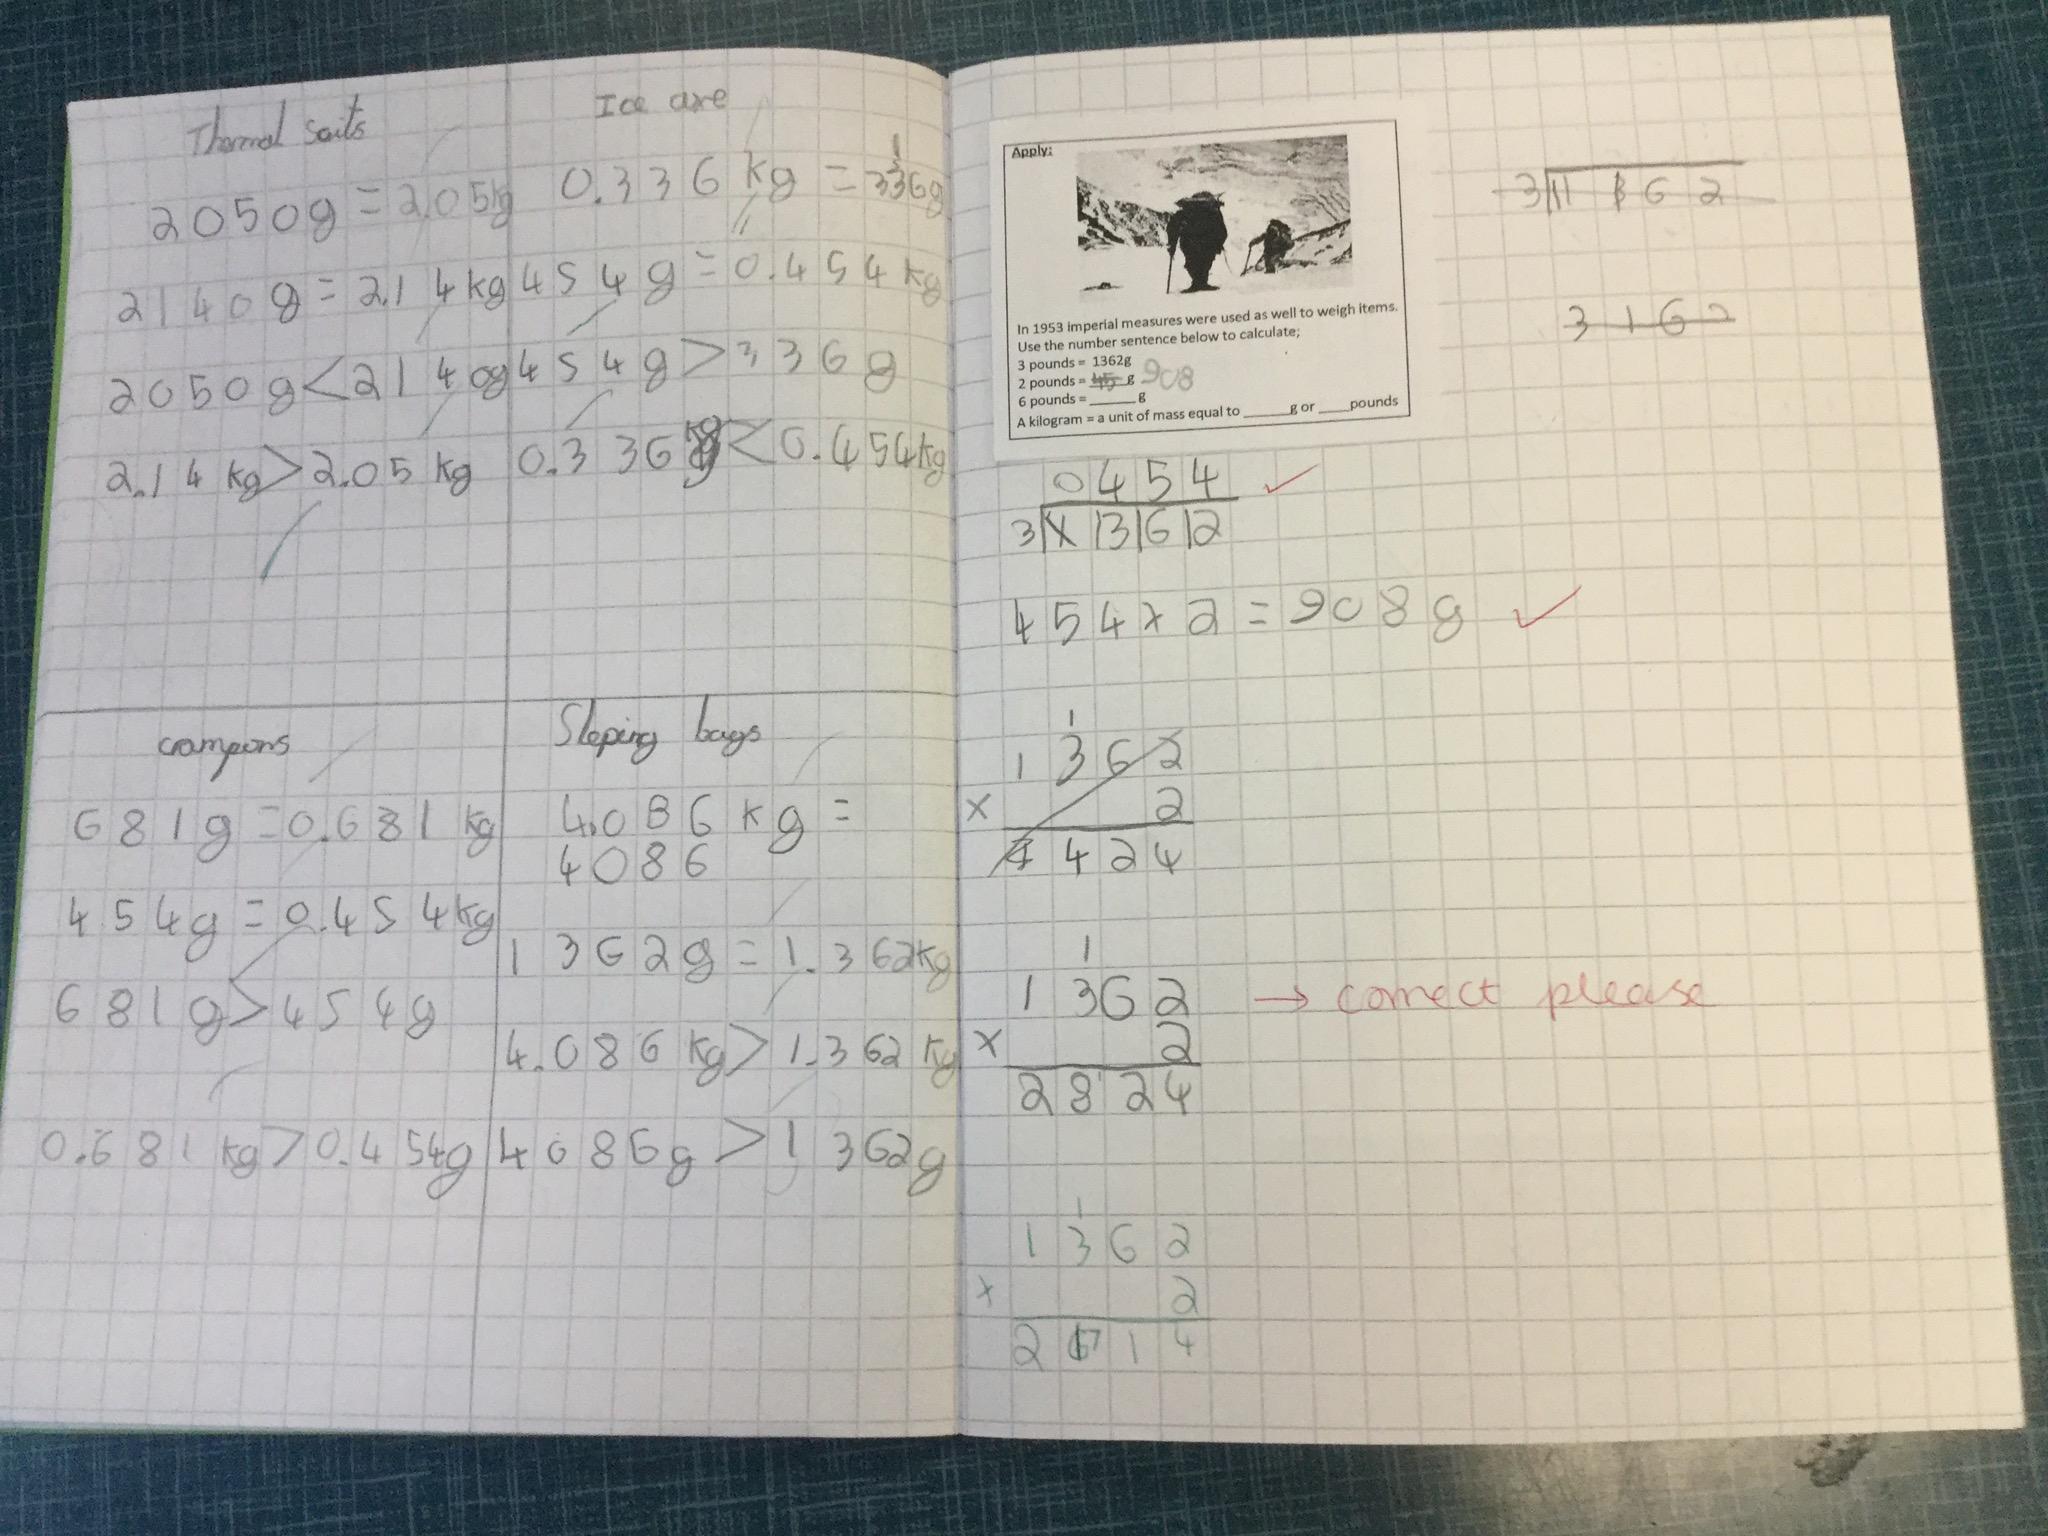 Thermal Suits
2050g = 2.05kg
2140g = 2.14kg
2050g < 2140g
2.14kg > 2.05kg
Ice axe
0.336kg = 336g
454g = 0.454kg
454g > 336g
0.336kg < 0.454kg
crampons
681g = 0.681kg
454g = 0.454kg
681g > 454g
0.681kg > 0.454g
Sleping bags
4.086kg =
4086
1362g = 1.362kg
4.086kg > 1.362kg
4086g > 1362g
Apply:
In 1953 imperial measures were used as well to weigh items.
Use the number sentence below to calculate;
3 pounds = 1362g
2 pounds = 45 g 908
6 pounds = ______ g
A kilogram = a unit of mass equal to ______g or ____pounds
0454
3 1 13 16 12
454 x 2 = 908g
1
1362
x 2
4424
1
1362 → correct please
x 2
2824
1
1362
x 2
2714
3 1 62
3162